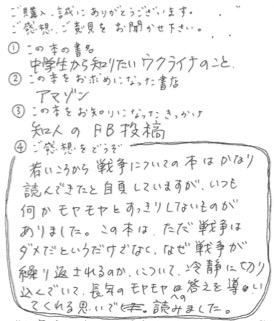 ご購入、誠にありがとうございます。
ご感想、ご意見をお聞かせ下さい。
① この本の書名
中学生から知りたいウクライナのこと
② この本をお求めになった書店
アマゾン
③ この本をお知りになったきっかけ
知人のFB投稿
④ ご感想をどうぞ
若いころから戦争についての本はかなり
読んできたと自負していますが、いつも
何かモヤモヤとすっきりしないものが
ありました。この本は、ただ戦争は
ダメだというだけでなく、なぜ戦争が
繰り返されるのか、について、冷静に切り
込んでいて、長年のモヤモヤへの答えを導い
てくれる思いで読みました。